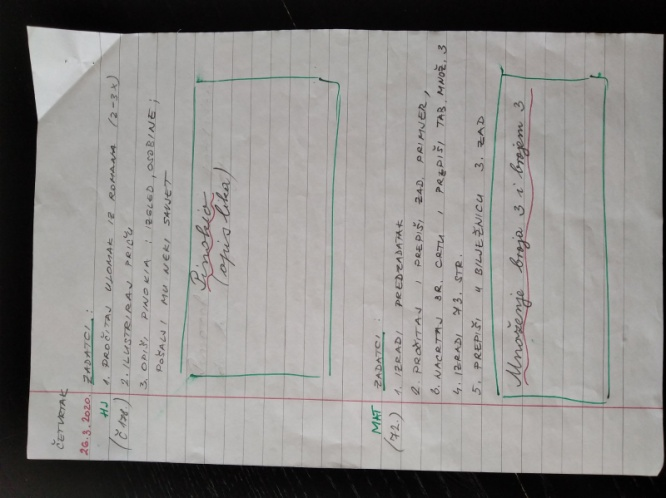 ČETVRTAK
26.3.2020. ZADATCI:
HJ 1. PROČITAJ ULOMAK IZ ROMANA (2-3X)
(Č 178) 2. ILUSTRIRAJ PRIČU
3. OPIŠI PINOKIA: IZGLED, OSOBINE;
POŠALJI MU NEKI SAVJET
Pinokio
(opis lika)
MAT ZADATCI:
(72.) 1. IZRADI PREDZADATAK
2. PROČITAJ I PREPIŠI ZAD. PRIMJER,
3. NACRTAJ BR. CRTU I PREPIŠI TAB. MNOŽ. 3
4. IZRADI 73. STR.
5. PREPIŠI U BILJEŽNICU 3. ZAD
Množenje broja 3 i brojem 3